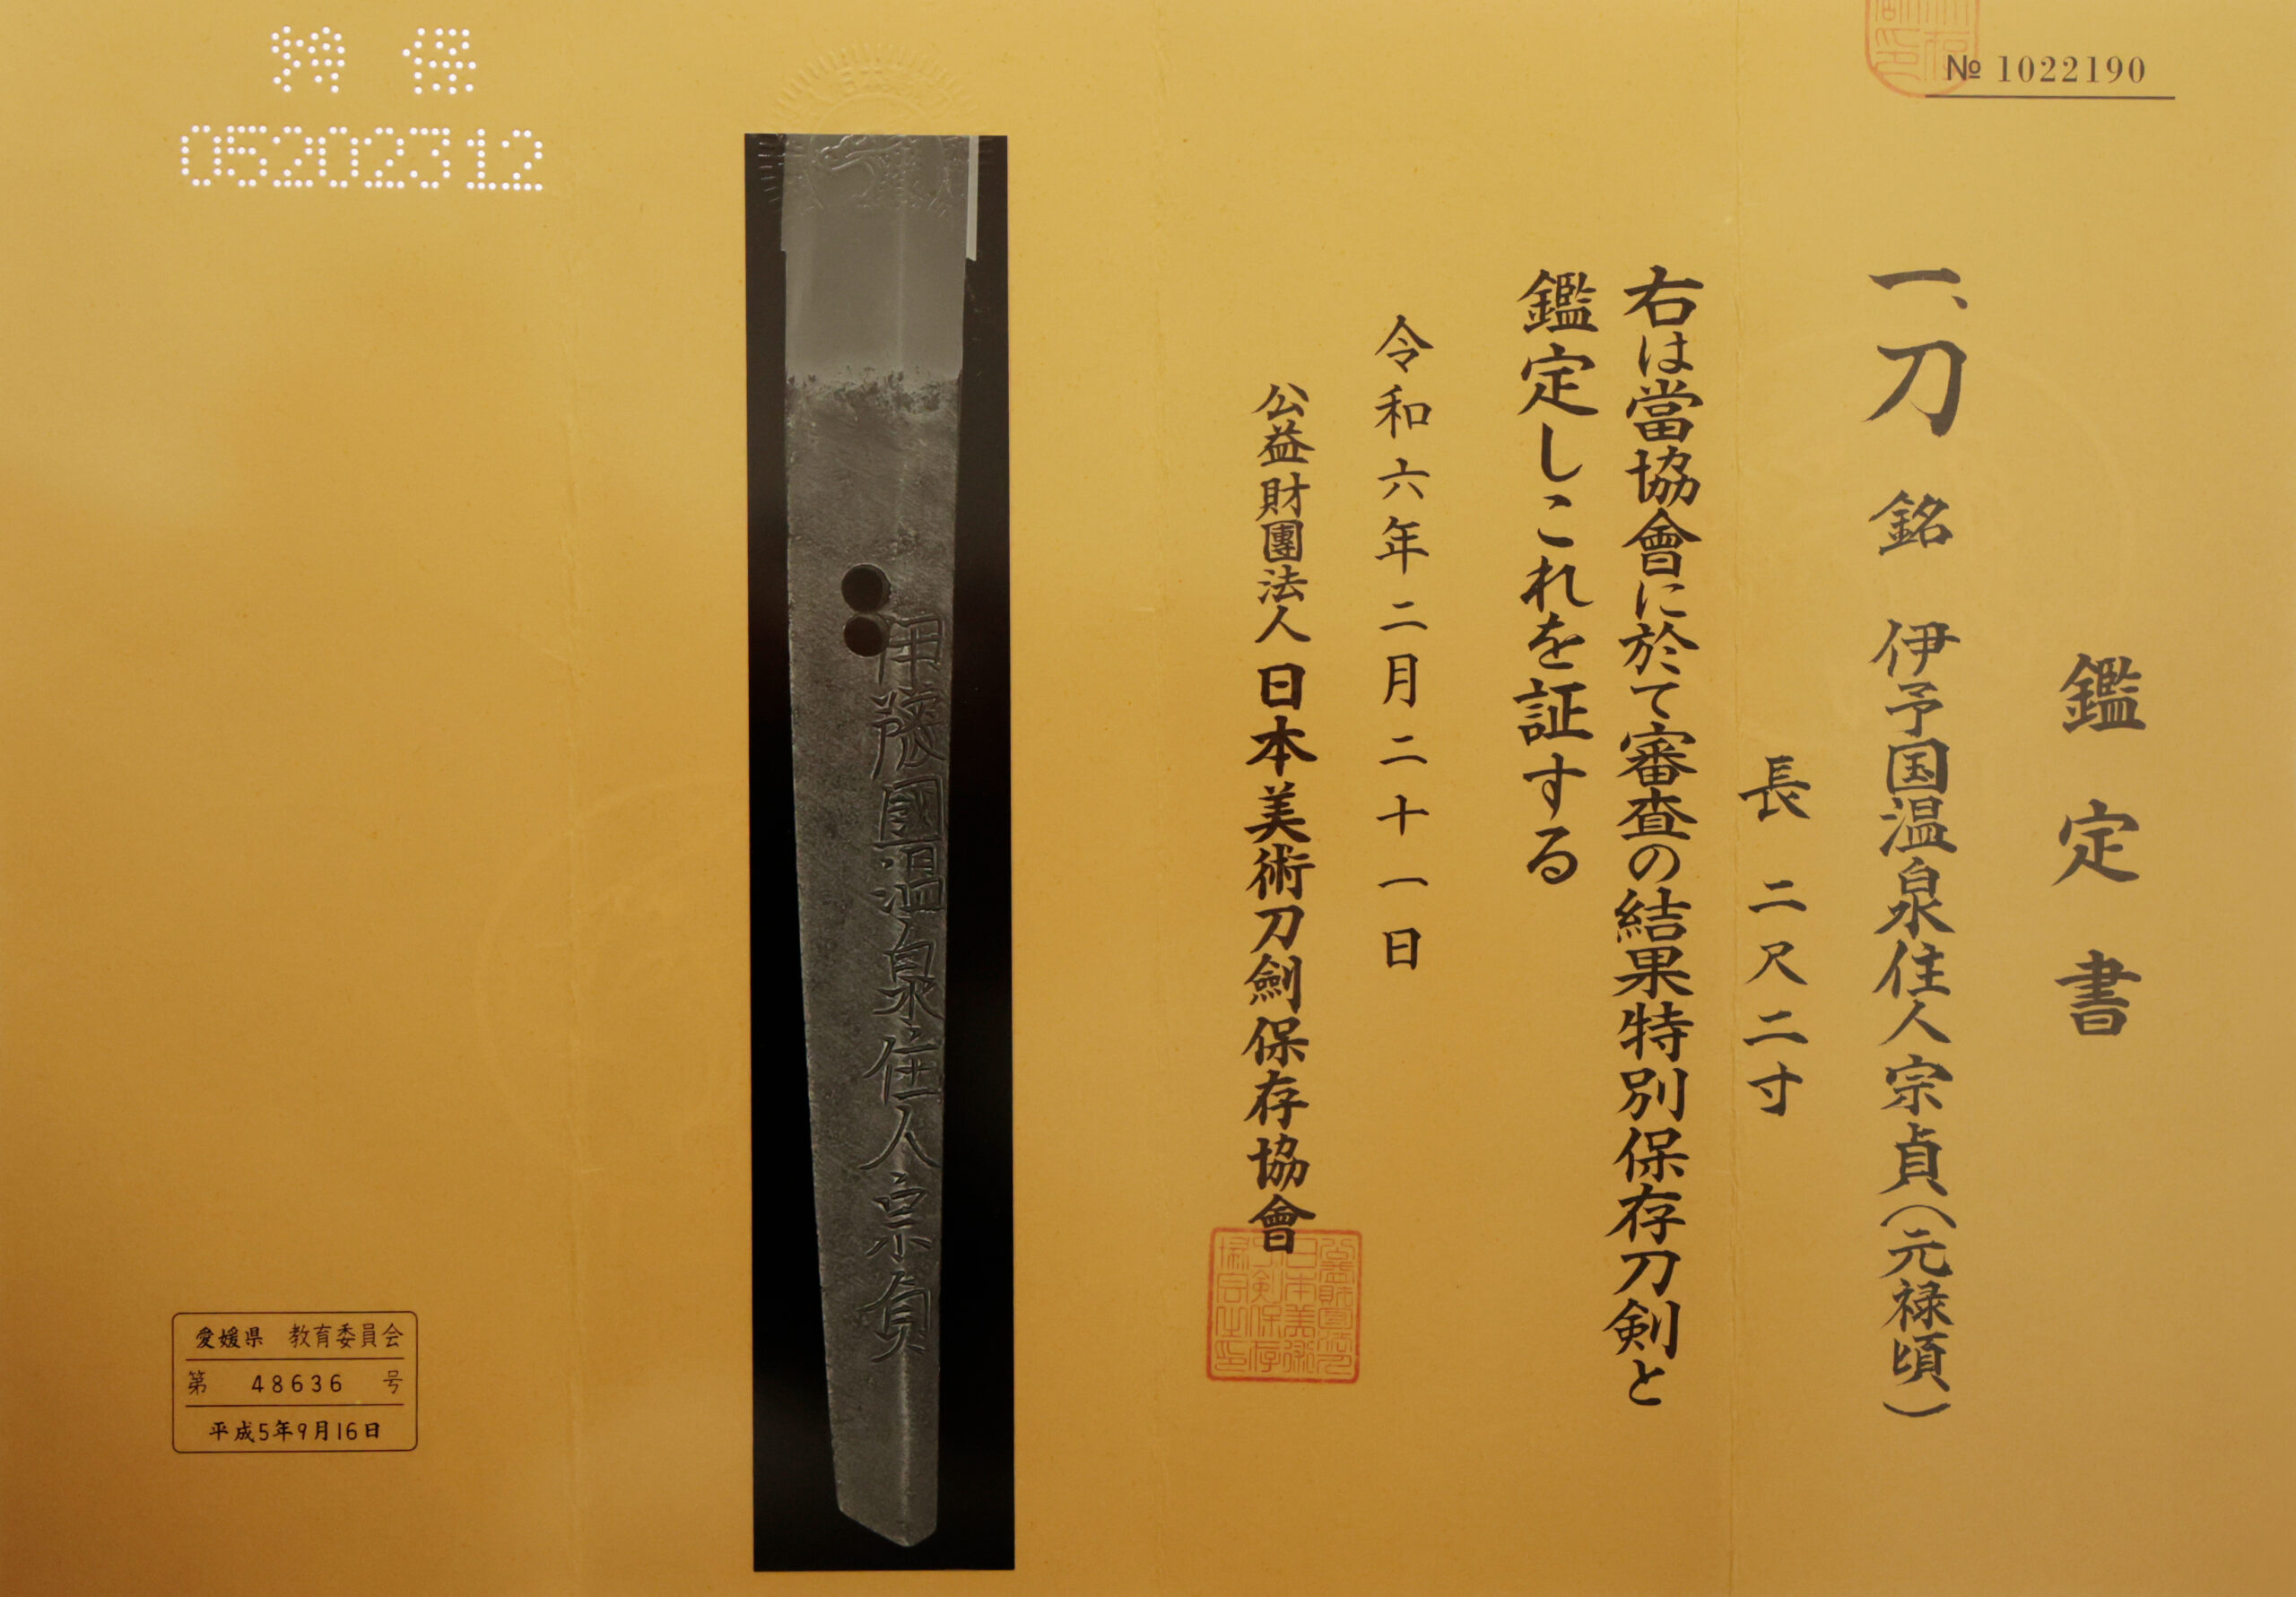 № 1022190
鑑定書
一、刀 銘 伊予国温泉住人宗貞(元禄頃)
長 二尺二寸
右は當協會に於て審査の結果特別保存刀剣と
鑑定しこれを証する
令和六年二月二十一日
公益財團法人 日本美術刀劍保存協會
國温泉住人宗貞
特 保
05202312
愛媛県 教育委員会
第 48636 号
平成5年9月16日